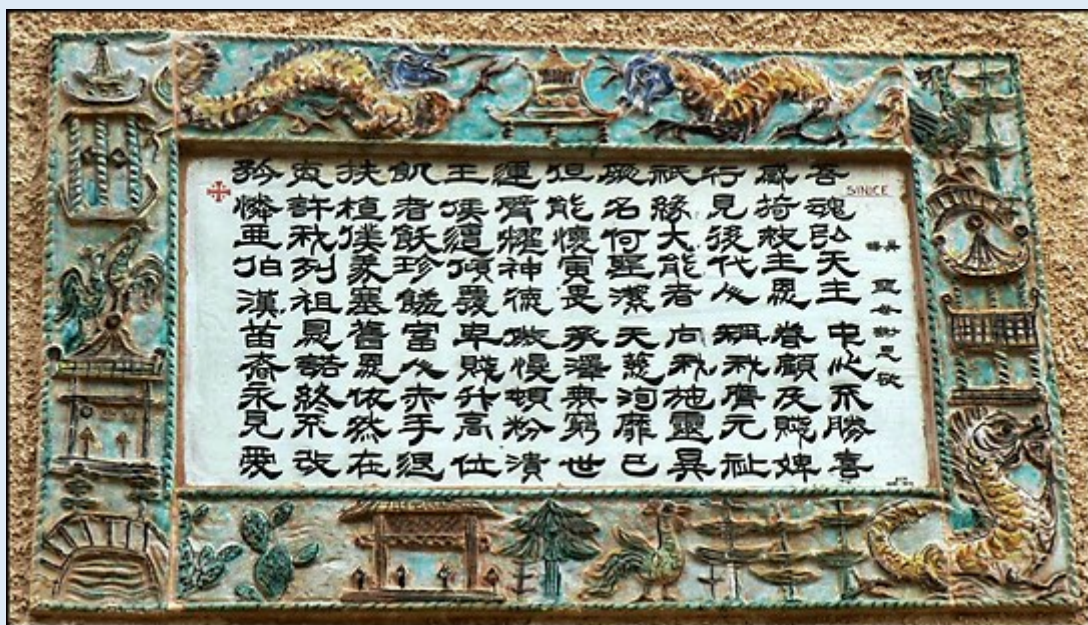 SINICE
吳譯 聖母謝恩歌
吾魂弘天主 中心不勝喜
感荷救主恩 眷顧及賤婢
行見後代人 稱我膺元祉
祇緣大能者 向我施靈異
厥名何聖潔 天慈洵靡已
但能懷寅畏 承澤無窮世
運臂耀神德 傲慢頓粉潰
王侯遭傾覆 卑賤升高位
飢者飫珍饈 富人赤手退
扶植僕義塞 舊恩依然在
許我列祖 恩諾終不改
矜憐亞伯漢 苗裔永見愛